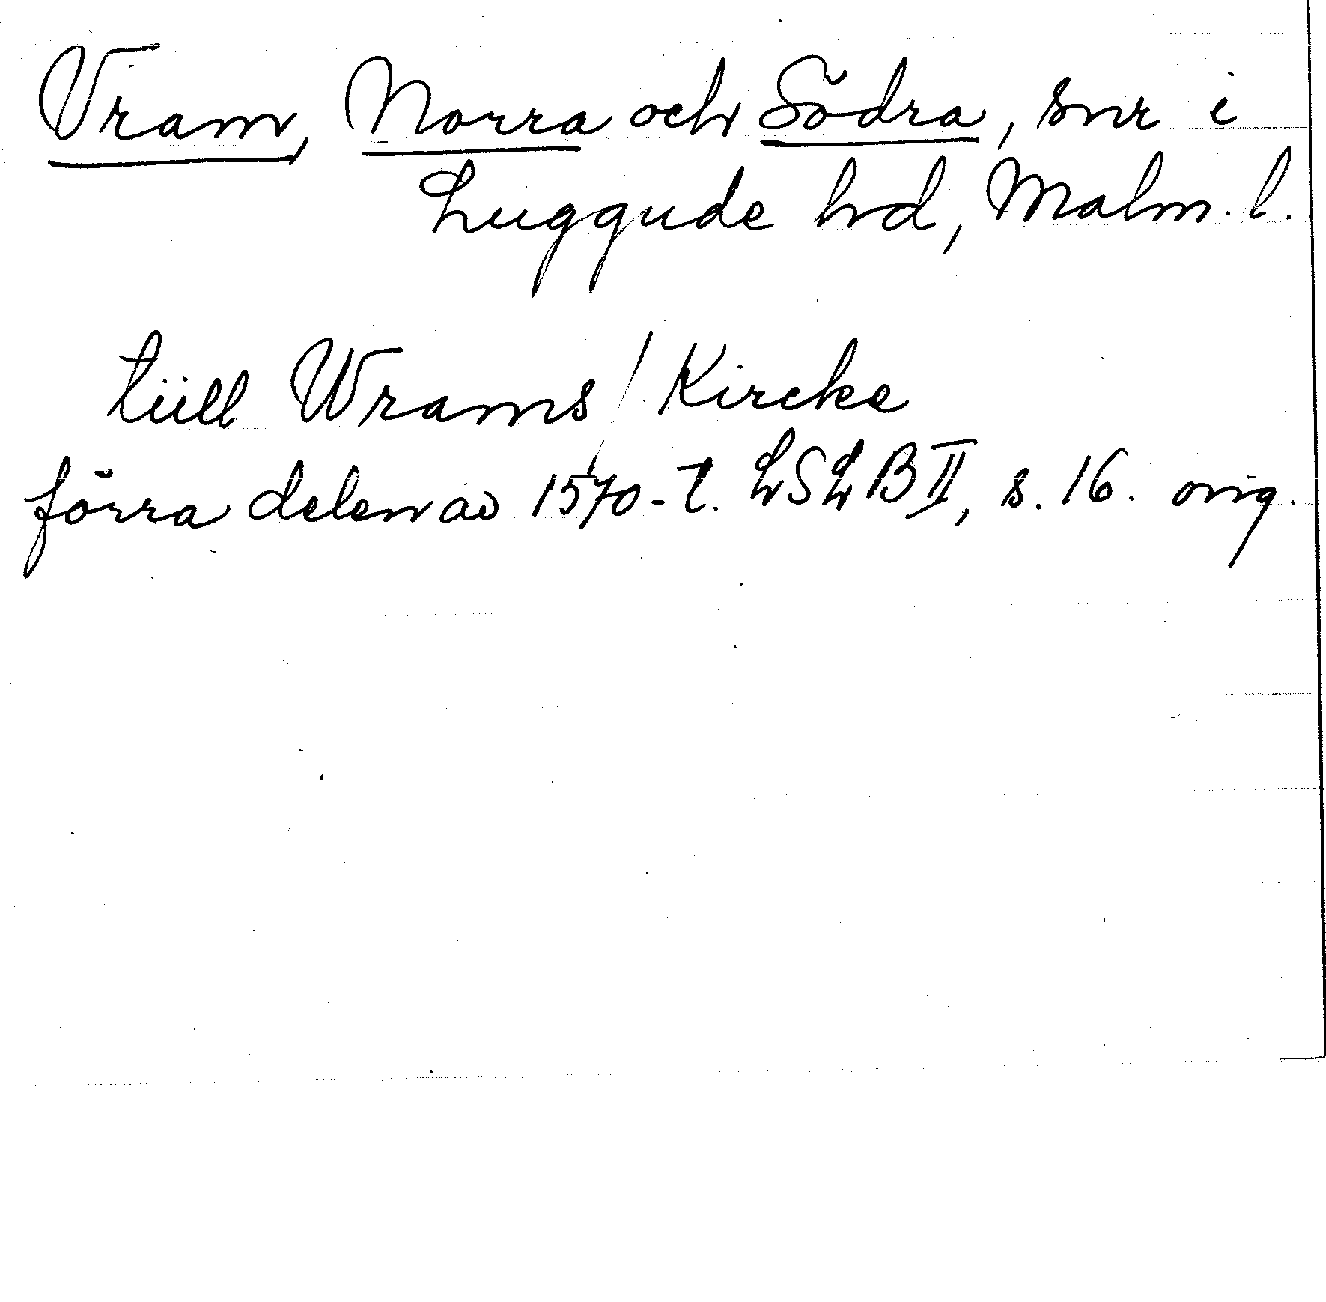 Vram, Norra och Södra, snr i
Luggude hd, Malm. l.
tiill Wrams / Kircke
förra delen av 1570-t. LSLB II, s. 16. orig.